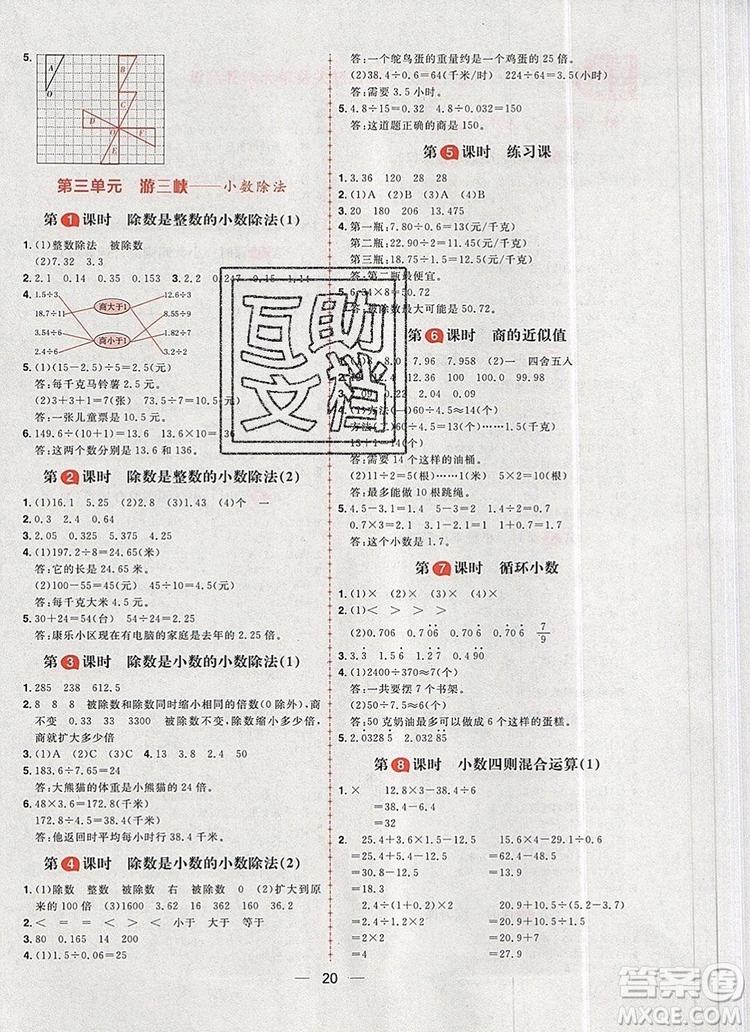 5.
A
B
O
C
D
O
F
E
第三单元 游三峡——小数除法
第1课时 除数是整数的小数除法(1)
1.(1)整数除法 被除数
(2)7.32 3.3
2. 2.1 0.14 2.1 0.13 0.247
4. 1.5÷3 12.6÷3
18.7÷11 商大于1 8.55÷9
3.54÷6 商小于1 1.82÷7
2.4÷6 12.6÷6
5.(1)15÷2=7.5(元)
答:每千克马铃薯 2.5 元。
(2)3+3=6 73.5÷7=10.5(元)
答:一张儿童票是 10.5 元。
6. 149.6÷(10+1)=13.6 13.6×10=136
答:这两个数分别是 13.6 和 136。
第2课时 除数是整数的小数除法(2)
1.(1)16.1 5.25 (2)2.8 (3)1.5 (4)个 一
2. 0.3 0.64 0.4
3. 2.05 0.325 5.375 0.045
4.(1)197.2÷8=24.65(米)
答:它的长是 24.65 米。
(2)100-55=45(元) 45÷10=4.5(元)
答:每千克大米 4.5 元。
5. 30+24=54(台) 54÷24=2.25
答:康乐小区现在有电脑的家庭是去年的 2.25 倍。
第3课时 除数是小数的小数除法(1)
1. 285 238 612.5
2. 8 8 8 被除数和除数同时缩小相同的倍数(0 除外),商
不变 0.33 33 3300 被除数不变,除数缩小多少倍,
商就扩大多少倍
3.(1)A (2)B (3)C 4. 13.2 50
5. 283.2÷11.8=24
答:大熊猫的体重是小熊猫的 24 倍。
6. 48×3.6=172.8(千米)
172.8÷4.5=38.4(千米)
答:他返回时平均每小时行 38.4 千米。
第4课时 除数是小数的小数除法(2)
1.(1)除数 整数 被除数 右 被除数 0 (2)扩大到原
来的 100 倍 (3)1600 3.62 36.2 362
2. < = = > > < 小于 大于 等于
3. 80 0.165 40
4.(1)1.5÷0.06=25
答:一个鸵鸟蛋的重量约是一个鸡蛋的 25 倍。
(2)38.4÷0.6=64(千米/时) 224÷64=3.5(小时)
答:需要 3.5 小时。
5. 4.8÷15=0.32 4.8÷0.032=150
答:这道题正确的商是 150。
第5课时 练习课
1. 3.36 28 360
2. 1.83 0.315 0.508
3. 20 180 206 13.64
4. 第一瓶:7.80÷0.6=13(元/千克)
第二瓶:22.90÷2=11.45(元/千克)
第三瓶:18.75÷1.5=12.5(元/千克)
答:第二瓶最便宜。
答:被除数最大可能是 50.72。
第6课时 商的近似值
(2)一 四舍五人
答:需要 14 个这样的油桶。
(2)11÷2=5(根)……1(米)
答:最多能做 10 根跳绳。
5. 4.5-3.1=1.4 5-3=2 1.4÷2=0.7
0.7×3=2.1 3.1-2.1=1
答:这个小数是 1。
第7课时 循环小数
1.(1)× (2)× (3)× (4)×
3. 1.5̇6̇ 1.56̇ 1.56
4.(1)2400÷370≈7(个)
答:一共要摆 7 个书架。
(2)50÷7.5≈6(个)
答:50 克奶油最多可以做成 6 个这样的蛋糕。
第8课时 小数四则混合运算(1)
1. × 12.8×3-38.4÷6
=38.4-6.4
=32
2. 25.4+3.6×1.5-12.5 50.4-6.5÷1.3×6
=25.4+5.4-12.5 =50.4-5×6
=30.8-12.5 =50.4-30
=18.3 =20.4
2.4÷(1+0.2)×2 20.9+10.5÷(5.2-3.7)
=2.4÷1.2×2 =20.9+10.5÷1.5
=2×2 =20.9+7
=4 =27.9
互助
文档
20
答案圈
MXQE.COM